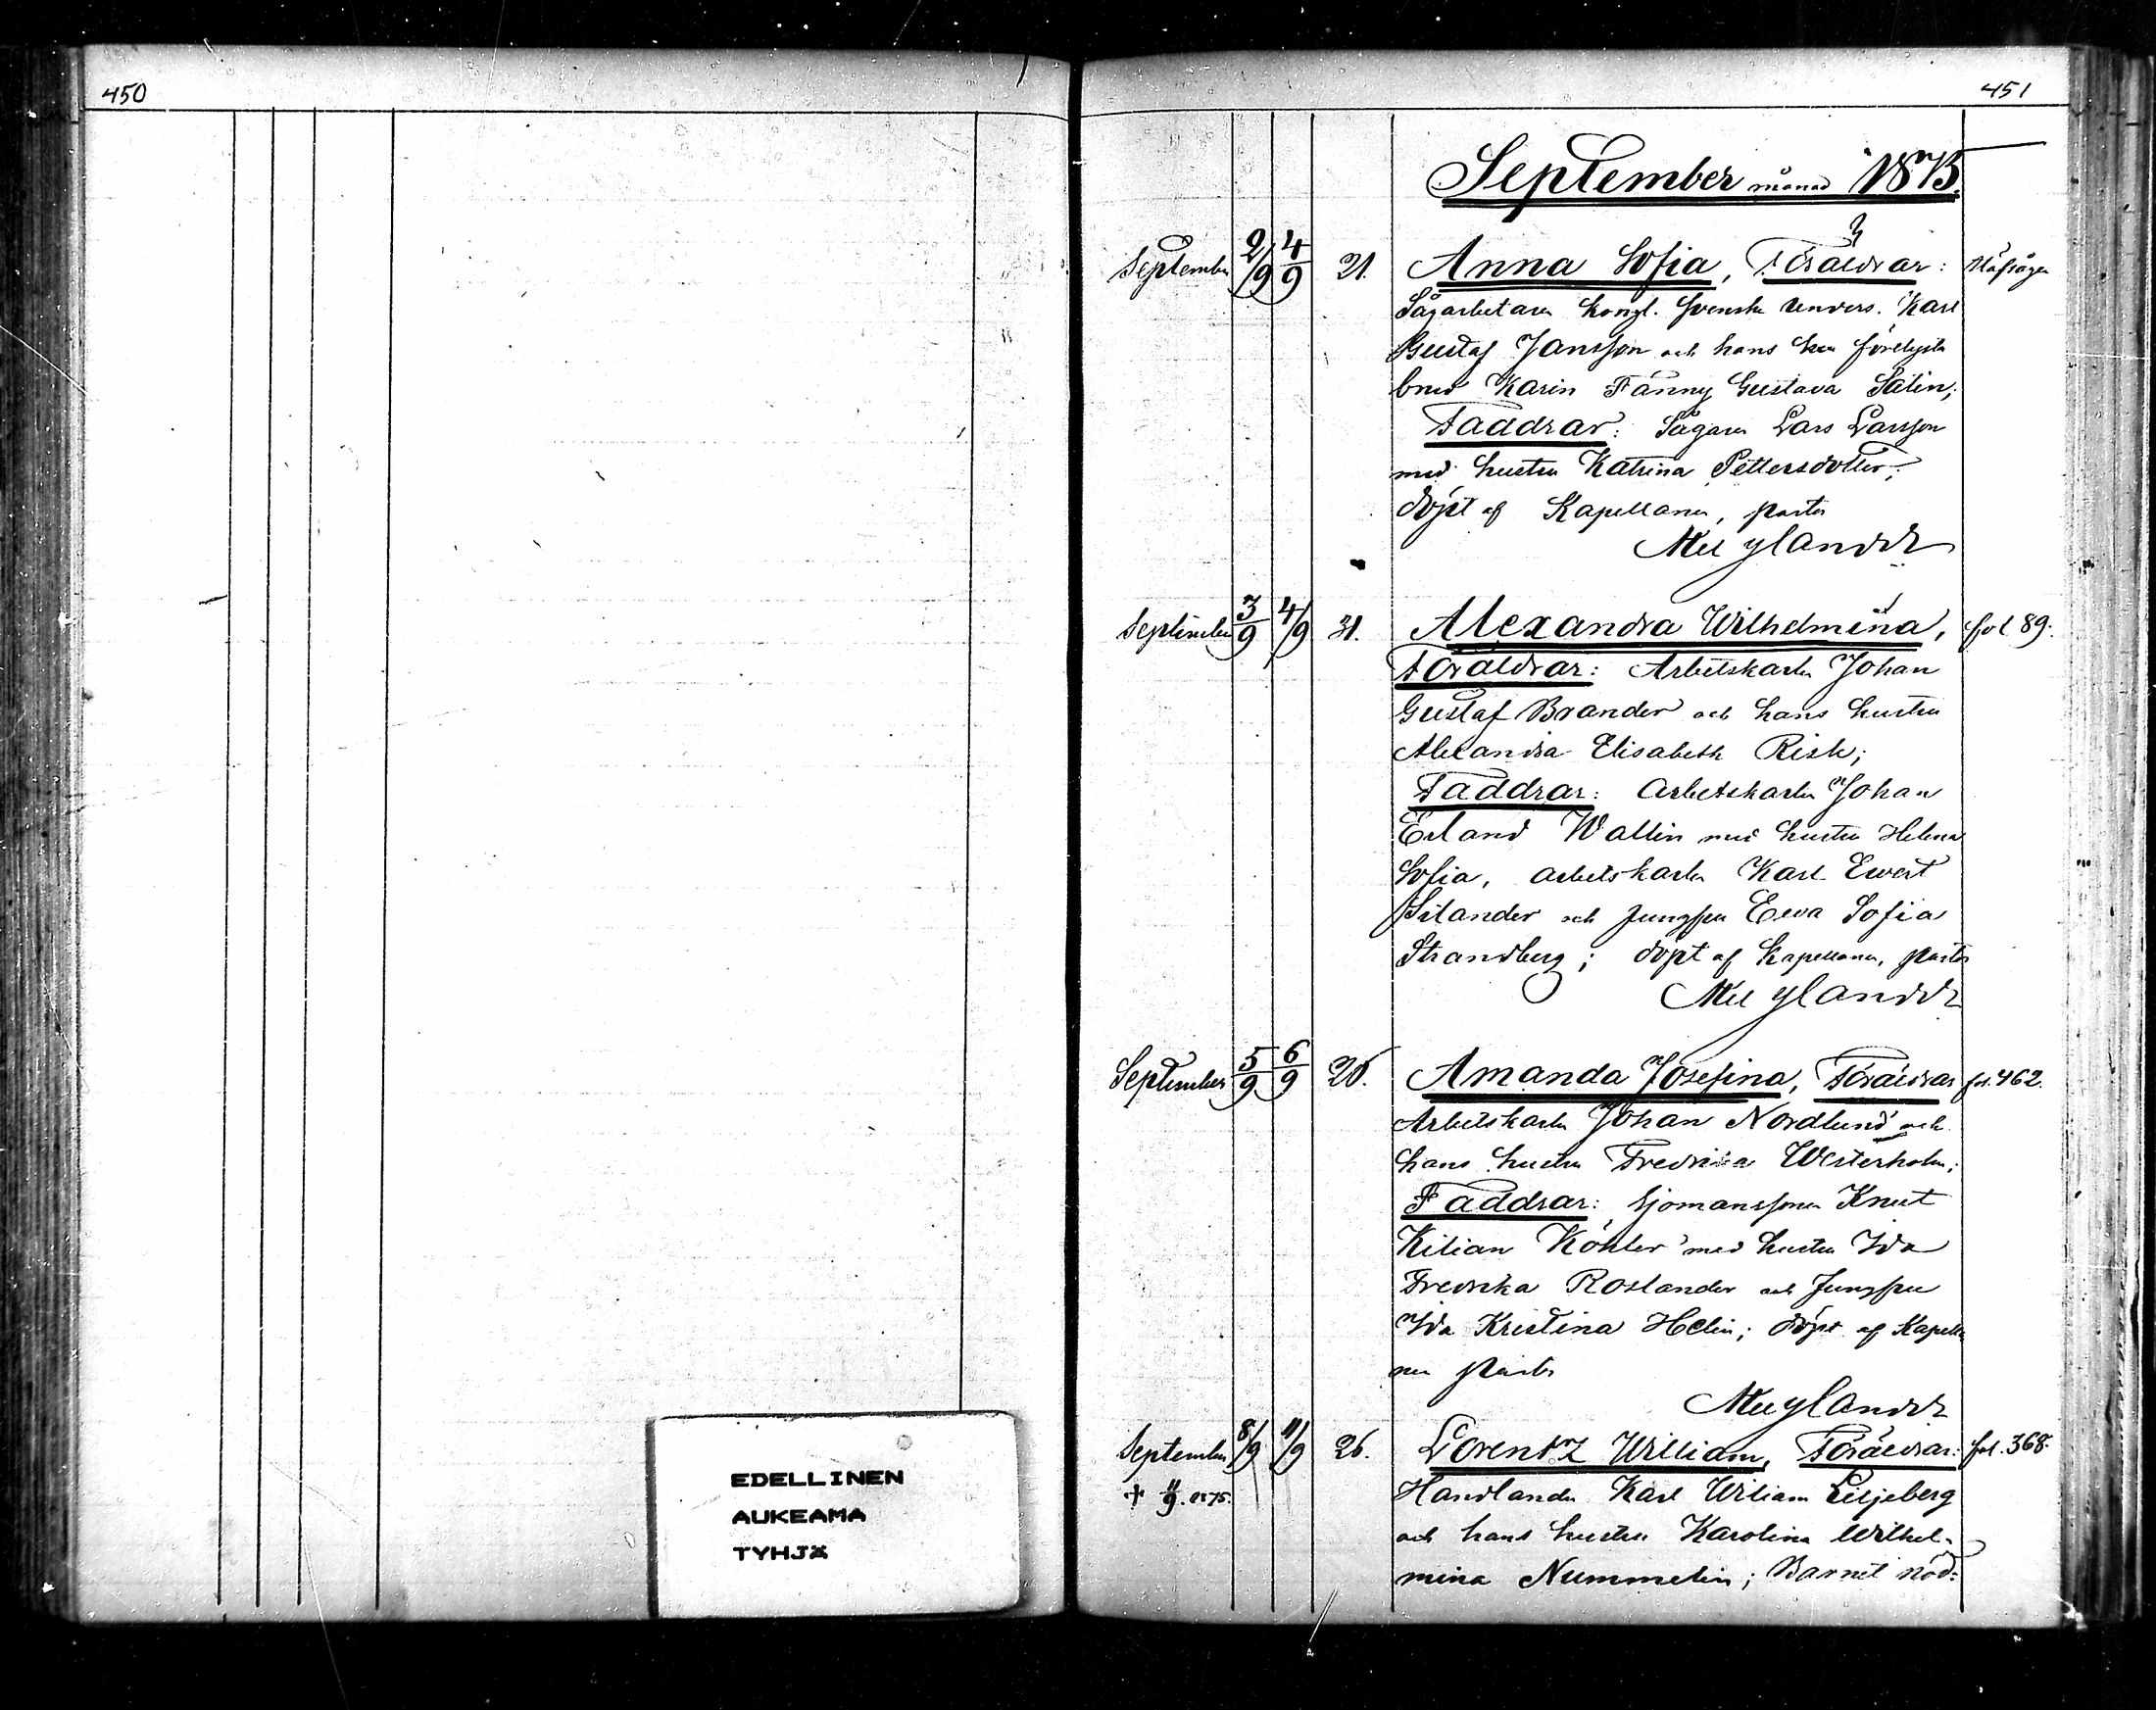 450
451
September månad 1875.
September 2/9 4/9 21. Anna Sofia, Föräldrar:
Sågarbetaren kongl. svenska unders. Karl
Gustaf Jansson och hans förelysta
brud Karin Fanny Gustava Salin;
Faddrar: Sågaren Lars Larsson
med hustru Katrina Pettersdotter;
döpt af Kapellanen, pastor
September 3/9 4/9 31. Alexandra Wilhelmina, fol 89.
Föräldrar: Arbetskarlen Johan
Gustaf Brander och hans hustru
Alexandra Elisabeth Risk;
Faddrar: Arbetskarlen Johan
Erland Wallin med hustru Helena
Sofia, arbetskarlen Karl Ewert
Silander och Jungfrun Ewa Sofia
Strandberg; döpt af Kapellanen, pastor
September 5/9 6/9 Amanda Josefina, Föräldrar fol. 462.
Arbetskarlen Johan Nordlund och
hans hustru Fredrika Westerholm;
Faddrar: Sjömanssonen Knut
Kilian Köhler med hustru Ida
Fredrika Roslander och Jungfrun
Ida Kristina Helin; döpt af Kapella
nen pastor
September 8/9 11/9 26. Lorentz William, Föräldrar: fol. 368.
† 11/9. 1875. Handlanden Karl William Liljeberg
och hans hustru Karolina Wilhel-
mina Nummelin; Barnet nöd=
EDELLINEN
AUKEAMA
TYHJÄ